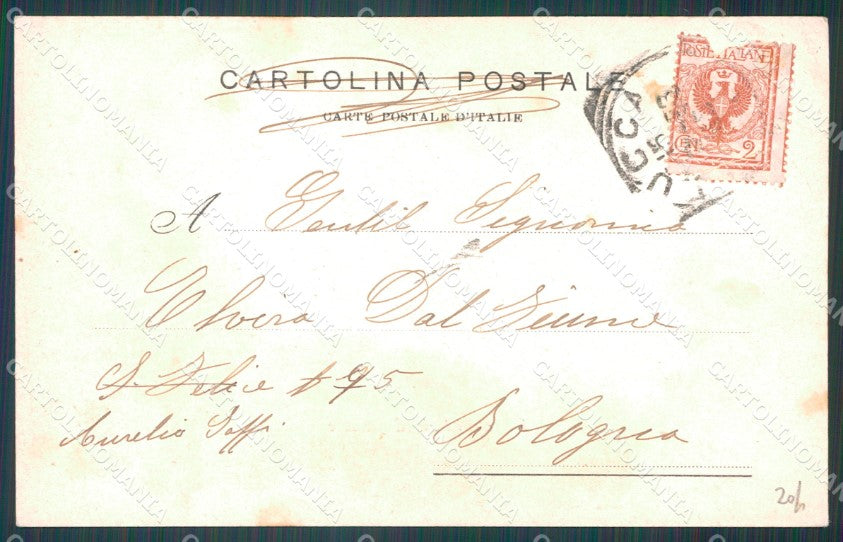 CARTOLINA POSTALE
CARTE POSTALE D'ITALIE
POSTE ITALIANE
2
LUCCA
A Gentil Signorina
Elvira Dal Fiume
S. Felice № 95
Aurelio Saffi
Bologna
20/
CARTOLINOMANIA